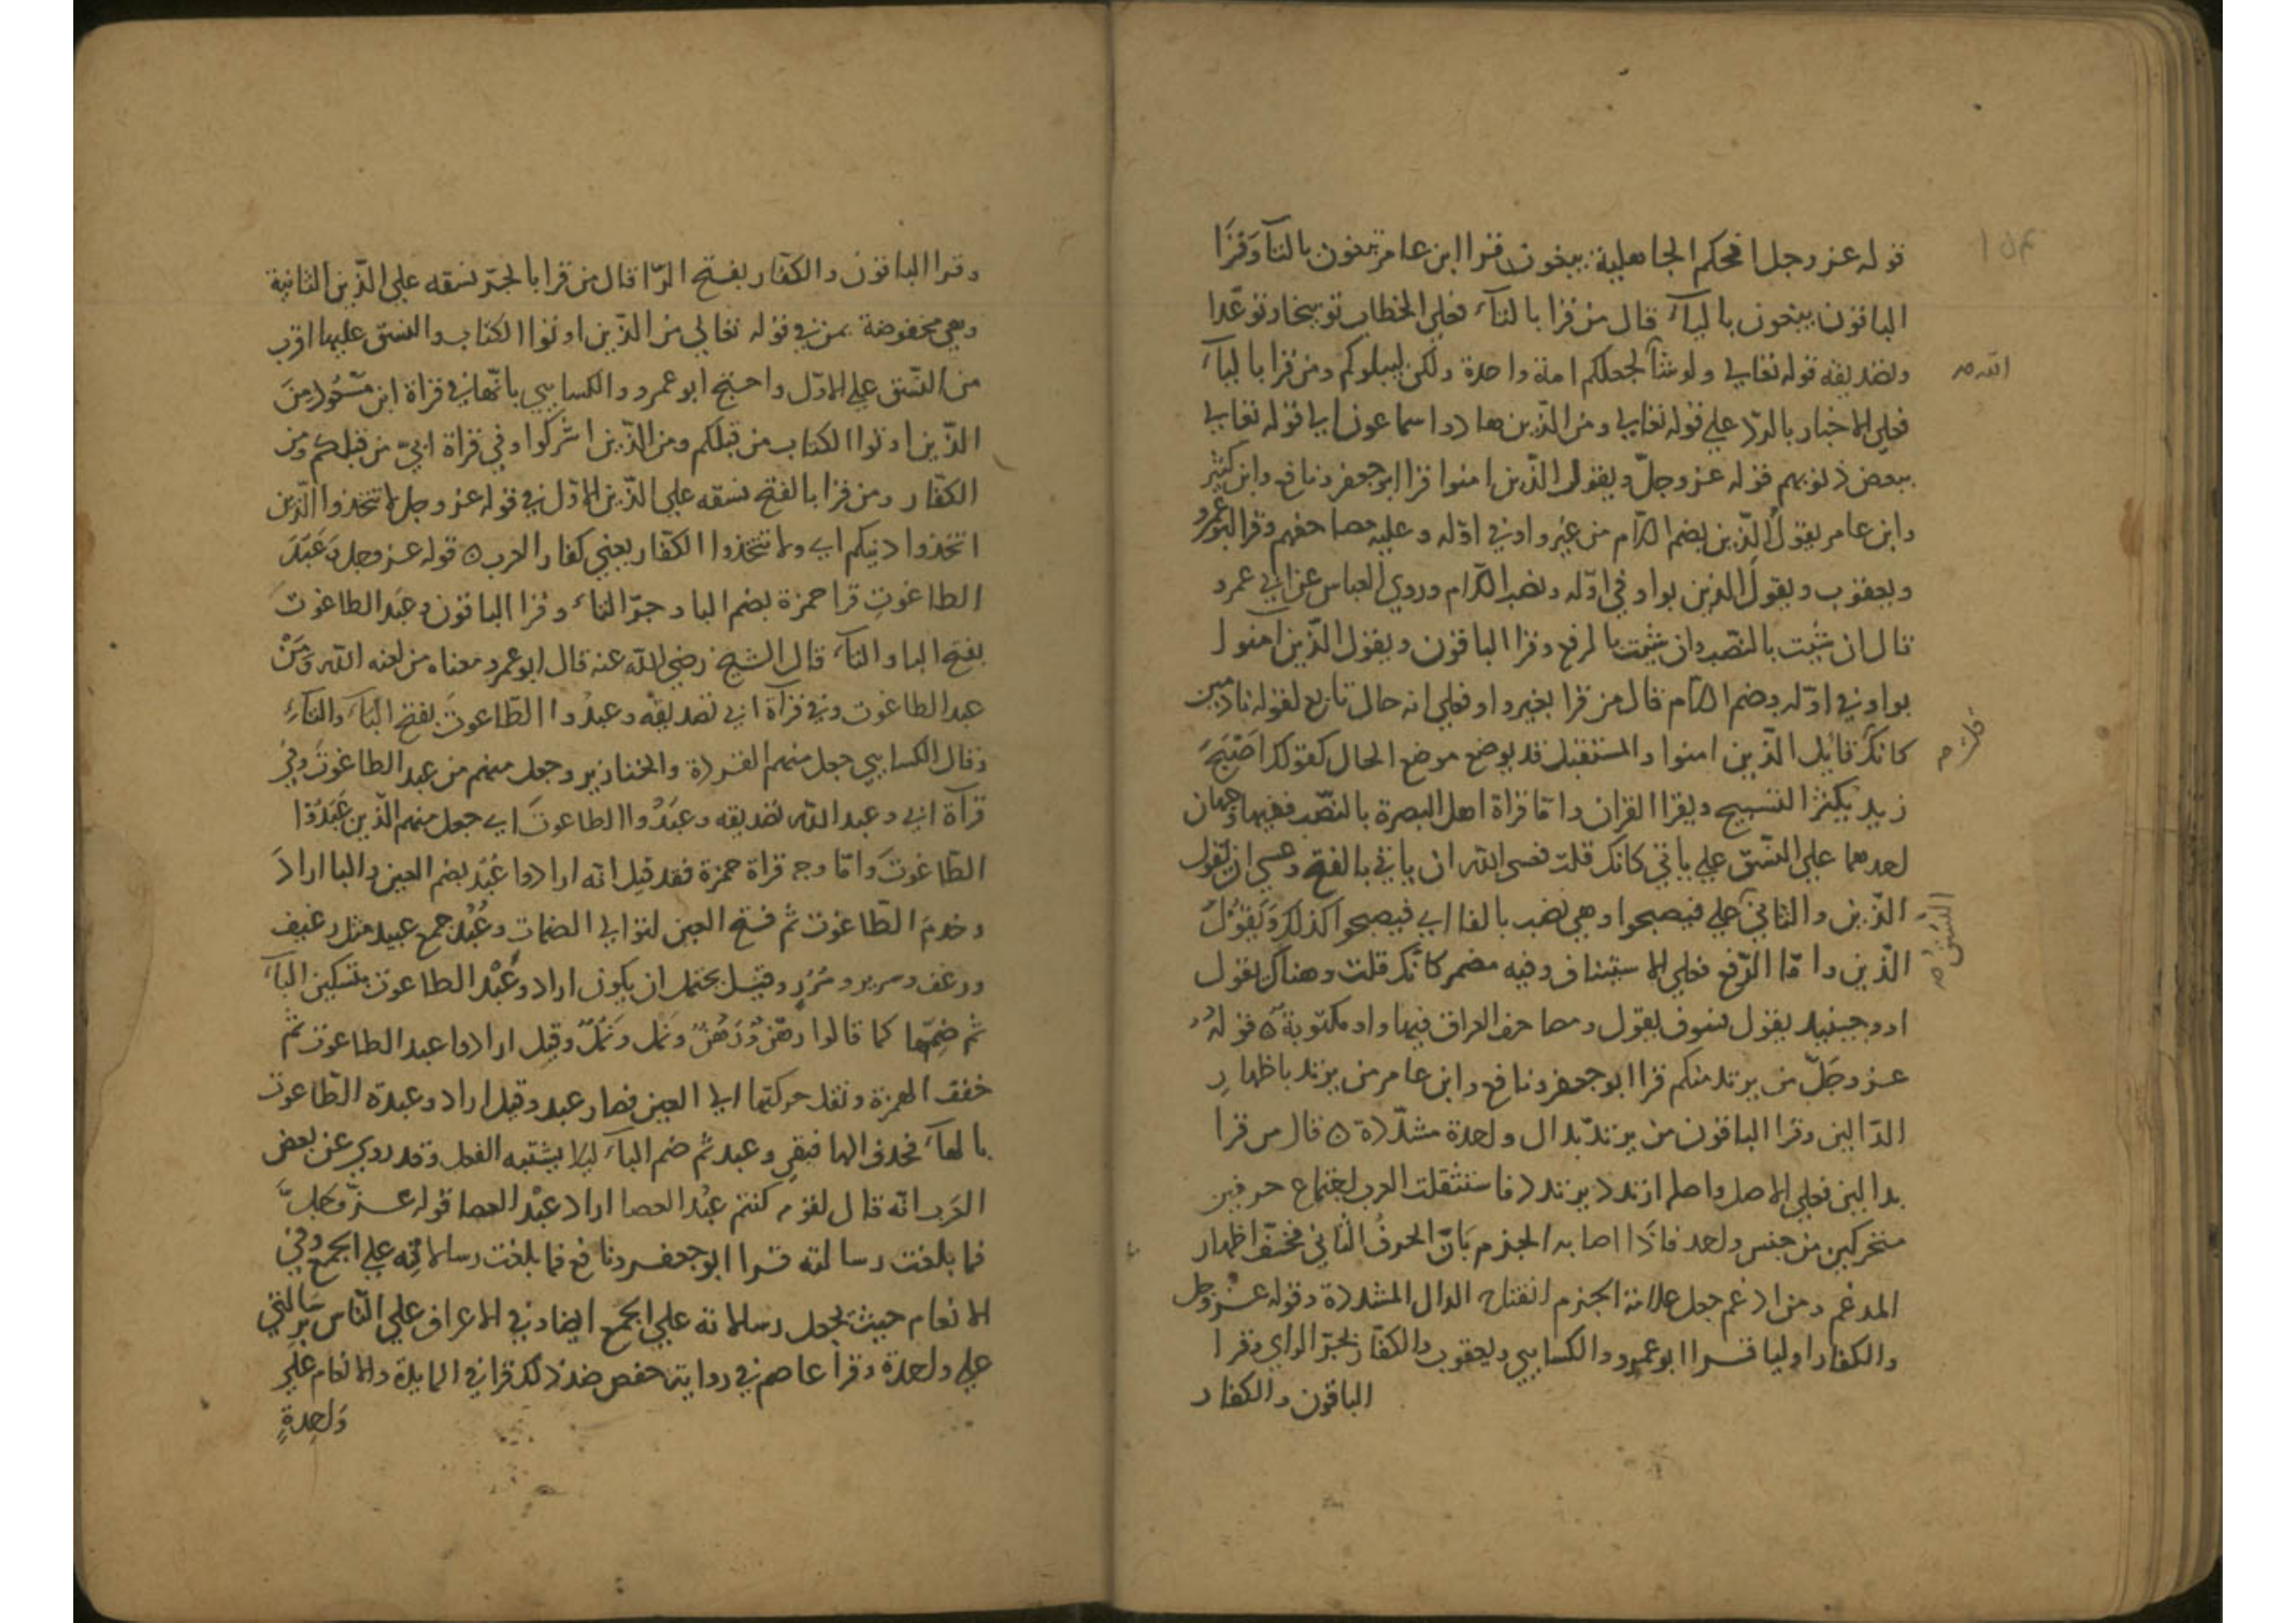 قوله عز وجل افحكم الجاهلية يبغون قرا ابن عامر تبغون بالتآ وقرَا
الباقون يبغون باليآء قال من قرا بالتآء فعلى الخطاب توبيخا وتوعّدا
وتصديقه قوله تعالى ولو شآ لجعلكم امة واحدة ولكن ليبلوكم ومن قرا باليآء
الله صح
فعلى الاخبار بالردّ على قوله تعالى ومن الذين هادوا سماعون الى قوله تعالى
ببعض ذنوبهم قوله عز وجلّ ويقول الذين امنوا قرا ابو جعفر ونافع وابن كثير
وابن عامر يقولُ الذين بضم اللام من غير واو في اوّله وعليه مصاحفهم وقرا ابو عمرو
ويعقوب ويقولَ الذين بواو في اوّله ونصب اللام وروي العباس عن ابي عمرو
قال ان شيت بالنصب وان شيت بالرفع وقرا الباقون ويقول الذين امنوا
بواو في اوّله وضم اللام قال من قرا بغير واو فعلى انه حال تابع لقوله نادمين
كانك قايل الذين امنوا والمستقبل قد يوضع موضع الحال كقولك اصْبَحَ
قلت صح
زيد يكثر التسبيح ويقرا القران وامّا قراة اهل البصرة بالنصب ففيها وجهان
احدهما على النسق على ياتي كانك قلت فعسى الله ان ياتي بالفتح وعسى ان يقول
الذين والثاني على فيصبحوا وهي نصب بالفا اي فيصبحوا كذلك ويَقولُ
النسق صح
الذين وامّا الرّفع فعلى الاستيناف وفيه مضمر كانك قلت وهناك يقول
او وحينيد يقول سوف يقول ومصاحف العراق فيها واو مكتوبة ٥ قولهُ
عز وجَلّ من يرتد منكم قرا ابو جعفر ونافع وابن عامر من يرتدد باظهارِ
الدالين وقرا الباقون من يرتدّ بدال واحدة مشدّدة ٥ قال من قرا
بدالين فعلى الاصل واصله ارتدد يرتدد فاستثقلت العرب اجتماع حرفين
متحركين من جنس واحد فاذَا اصابه الجزم بَانَ الحرفُ الثاني فخفّ اظهار
المدغم ومن ادغم جعل علامة الجزم انفتاح الدال المشددة وقوله عز وجل
والكفار اوليا قرا ابو عمرو والكسايي ويعقوب والكفّار بجرّ الراي وقرا
الباقون والكفار
وقرا الباقون والكفّار بفتح الرّا قال من قرا بالجرّ نسقه على الذين الثانية
وهي مخفوضة بمن في قوله تعالي من الذين اوتوا الكتاب والنسق عليها اقرب
من النّسق على الاوّل واحتج ابو عمرو والكسايي بانّها في قراة ابن مسْعُود ومِنَ
الذّين اوتوا الكتاب من قبلكم ومن الذّين اشركوا وفي قراة ابيّ من قبلكم ومن
الكفّار ومن قرا بالفتح نسقه على الذّين الاوّل في قوله عز وجل لا تتخذوا الّذين
اتخذوا دينكم اي ولا تتخذوا الكفّار يعني كفار العرب ٥ قوله عز وجل وَعَبَدَ
الطاغوتِ قرا حمزة بضم البا وجرّ التاء وقرا الباقون وعبَد الطاغوتَ
بفتح البا والتآء قال الشيخ رضي الله عنه قال ابو عمرو معناه من لعنه الله وَمَنْ
عبد الطاغوت وفي قرآة ابي تصديقه وعبدُوا الطّاغوتَ بفتح البآء والتآءِ
وقال الكسايي جعل منهم القردة والخنازير وجعل منهم من عبد الطاغوتَ وفي
قرآة ابي وعبد الله تصديقه وعبَدُوا الطاغوتَ اي جعل منهم الذين عَبَدُوْا
الطّاغوتَ وامّا وجه قراة حمزة فقد قيل انّه ارادوا عُبُد بضم العين والبا ارادَ
وخدمَ الطّاغوت ثم فتح العين لتوالي الضمات وعُبُد جمع عبيد مثل رغيف
ورغف وسرير وسُرُرٍ وقيل يحتمل ان يكون اراد وعَبْد الطاغوت بتسكين البآء
ثم ضمّها كما قالوا رهْن ورَهُنٌ ونَمْل ونَمُلٌ وقيل ارادوا عبد الطاغوت ثم
خفف الهمزة ونقل حركتها الى العين فصار عبد وقيل اراد وعبدة الطّاغوت
بالهآء فحذف الها فبقي وعبد ثم ضم البآء ليلا يشتبه الفعل وقد روي عن بعض
العَرب انّه قال لقومه كنتم عبُد العصا اراد عبْد العصا قوله عزّ وجَلّ
فما بلغت رسالته قرا ابو جعفر ونافع فما بلغت رسالاتِه على الجمع وفي
الانعام حيث يجعل رسالاته على الجمع ايضا وفي الاعراف على النّاس برِسَالتي
على واحدة وقرأ عاصم في رواية حفص ضدّ ذلك قرا في المايدة والانعام علي
وَاحِدةٍ